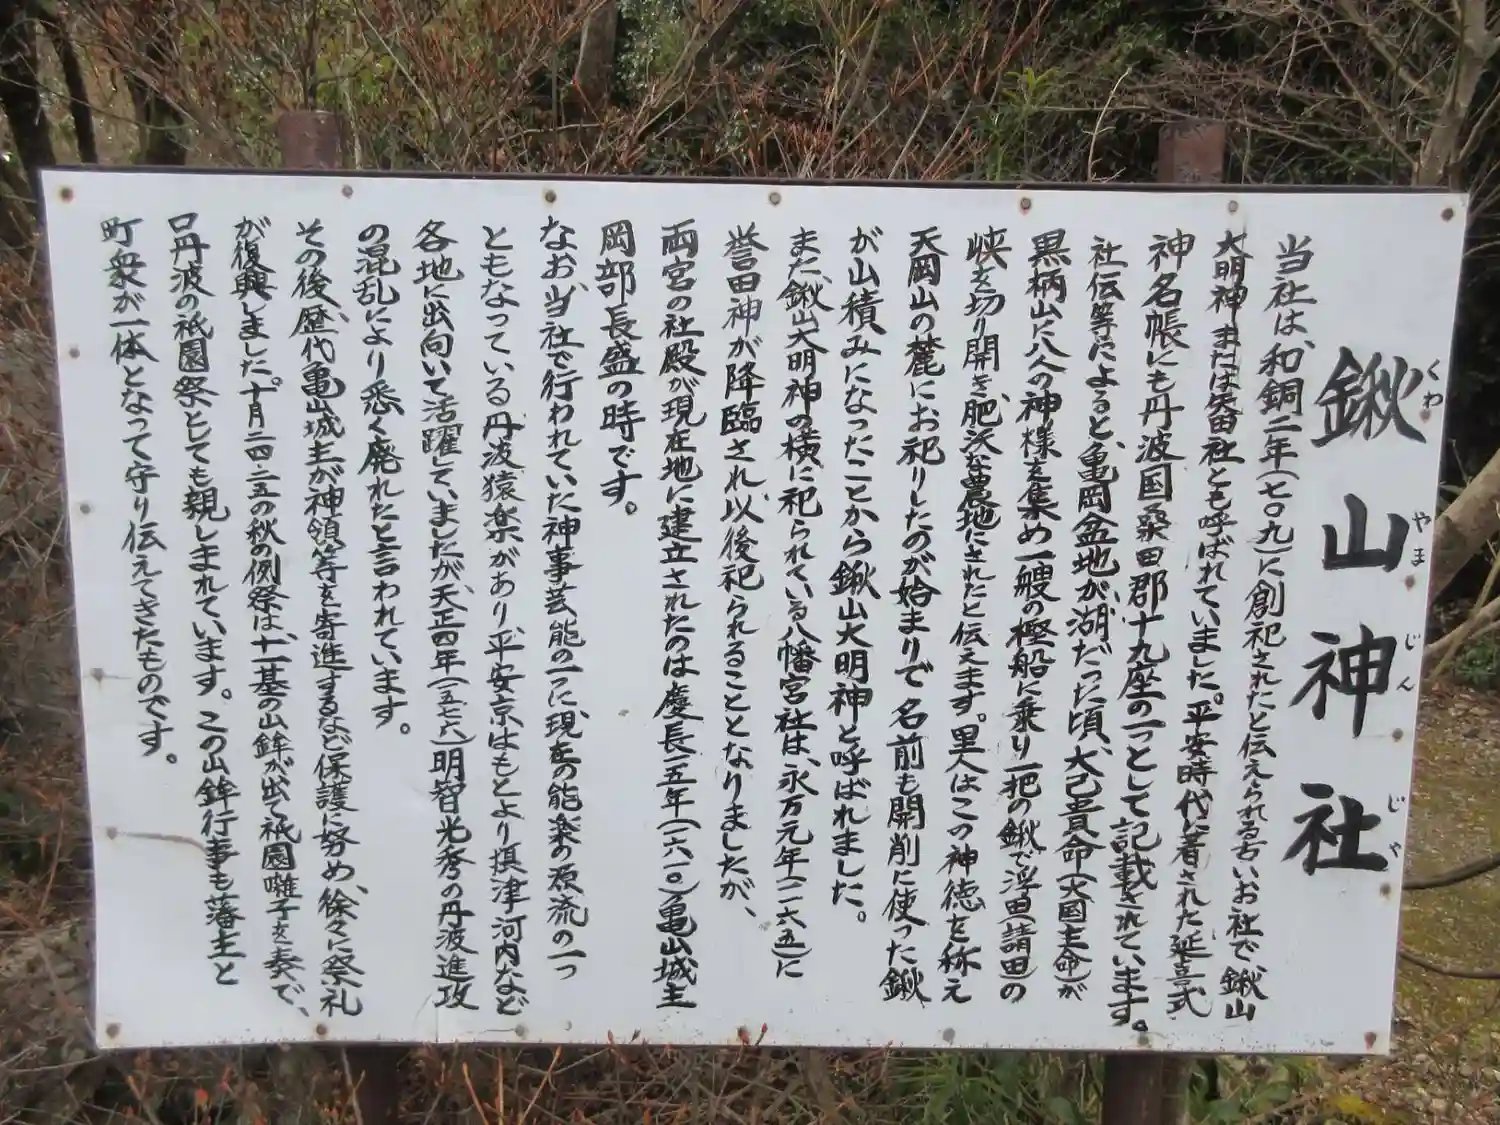 鍬山神社
くわ やま じん じゃ
当社は、和銅二年(七〇九)に創祀されたと伝えられる古いお社で、鍬山
大明神または矢田社とも呼ばれていました。平安時代に着された延喜式
神名帳にも丹波国桑田郡十九座の一つとして記載されています。
社伝等によると、亀岡盆地が、湖だった頃、大己貴命(大国主命)が
黒柄山に八人の神様を集め一艘の樫船に乗り一把の鍬で浮田(請田)の
峡を切り開き、肥沃な農地にされたと伝えます。里人はこの神徳を称え
天岡山の麓にお祀りしたのが始まりで名前も開削に使った鍬
が山積みになったことから鍬山大明神と呼ばれました。
また、鍬山大明神の横に祀られている八幡宮社は、永万元年(一一六五)に
誉田神が降臨され以後祀られることとなりましたが、
両宮の社殿が現在地に建立されたのは慶長一五年(一六一〇)亀山城主
岡部長盛の時です。
なお、当社で行われていた神事芸能の一つに、現在の能楽の源流の一つ
ともなっている丹波猿楽があり、平安京はもとより摂津河内など
各地に出向いて活躍していましたが、天正四年(一五七六)明智光秀の丹波進攻
の混乱により悉く廃れたと言われています。
その後、歴代亀山城主が神領等を寄進するなど保護に努め、徐々に祭礼
が復興しました。十月二四・二五の秋の例祭は、十一基の山鉾が出て祇園囃子を奏で、
口丹波の祇園祭としても親しまれています。この山鉾行事も藩主と
町衆が一体となって守り伝えてきたものです。